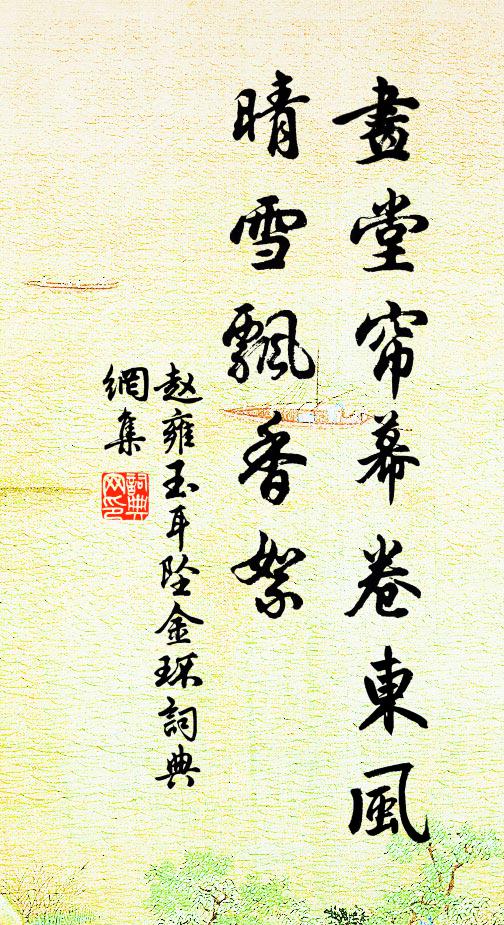 畫堂帘幕卷東風
晴雪飄香絮
赵雍玉耳坠金环詞典
網集
詞典
网印